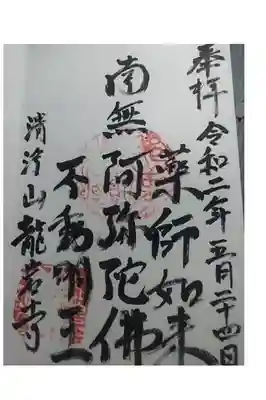 奉拝 令和二年 五月二十四日
薬師如来
南無阿弥陀佛
不動明王
清浄山龍岩寺